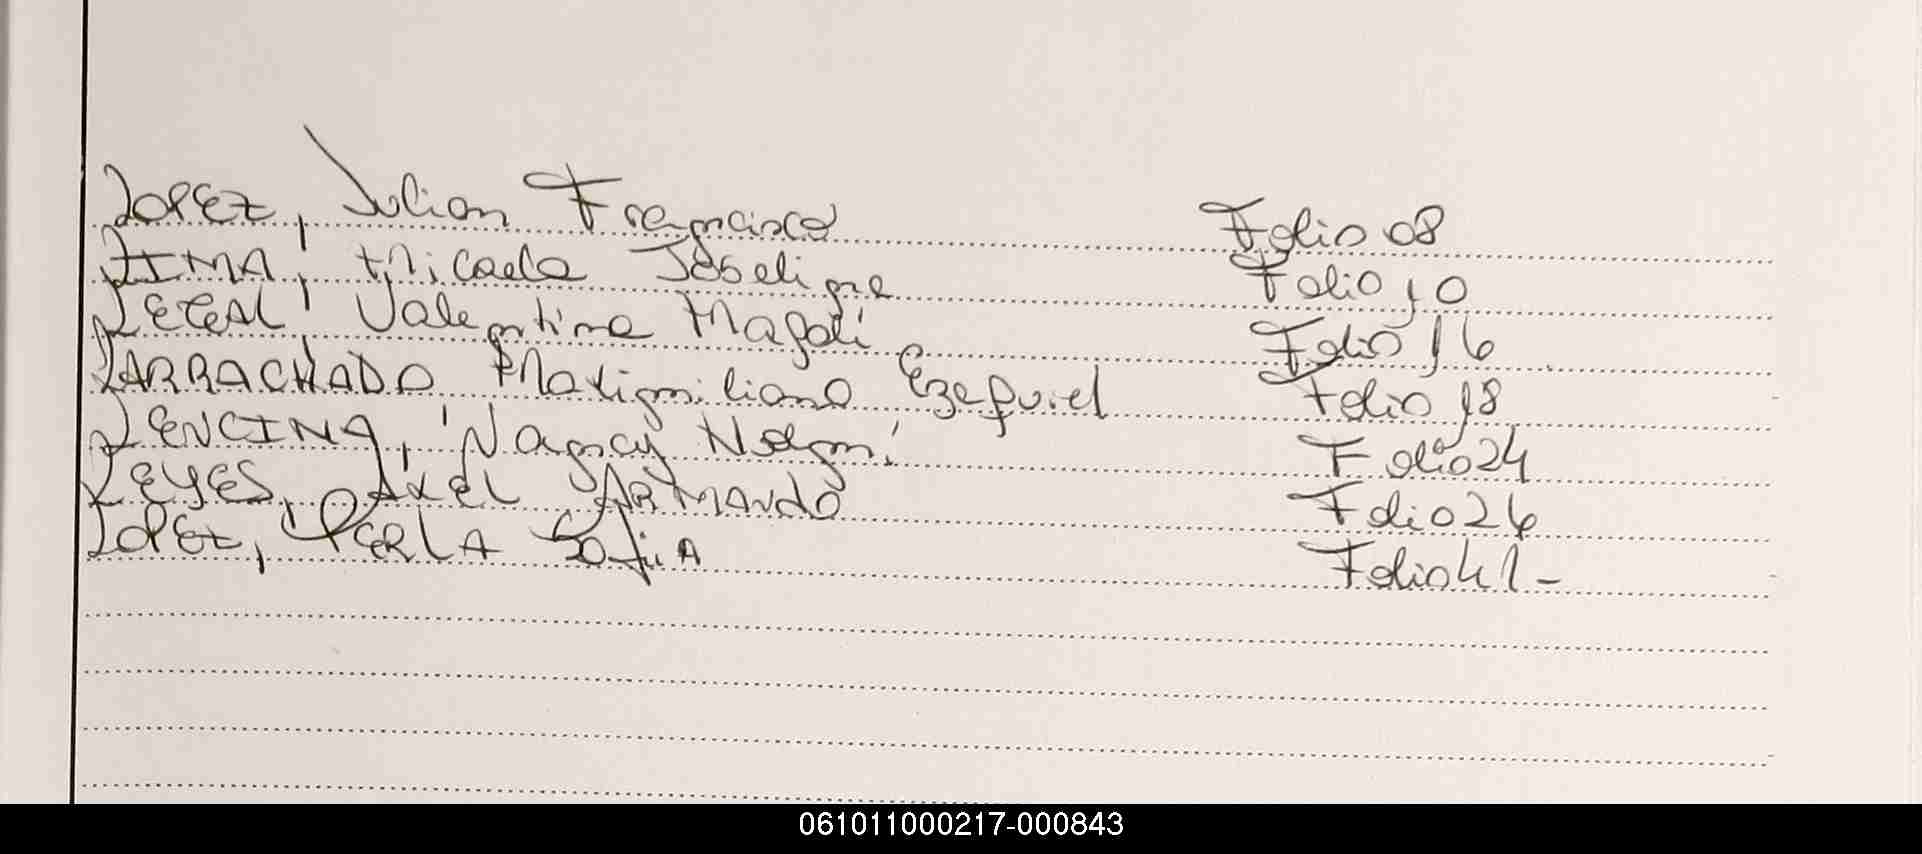 LOPEZ, Julian Francisco Folio 08
LIMA, Micaela Joseline Folio 10
Valentina Magali Folio 16
LARRACHADO Maximiliano Ezequiel Folio 18
LENCINA, Nancy Noemi Folio 24
LEYES, AXEL ARMANDO Folio 26
LOPEZ, PERLA SofiA Folio 41-
061011000217-000843